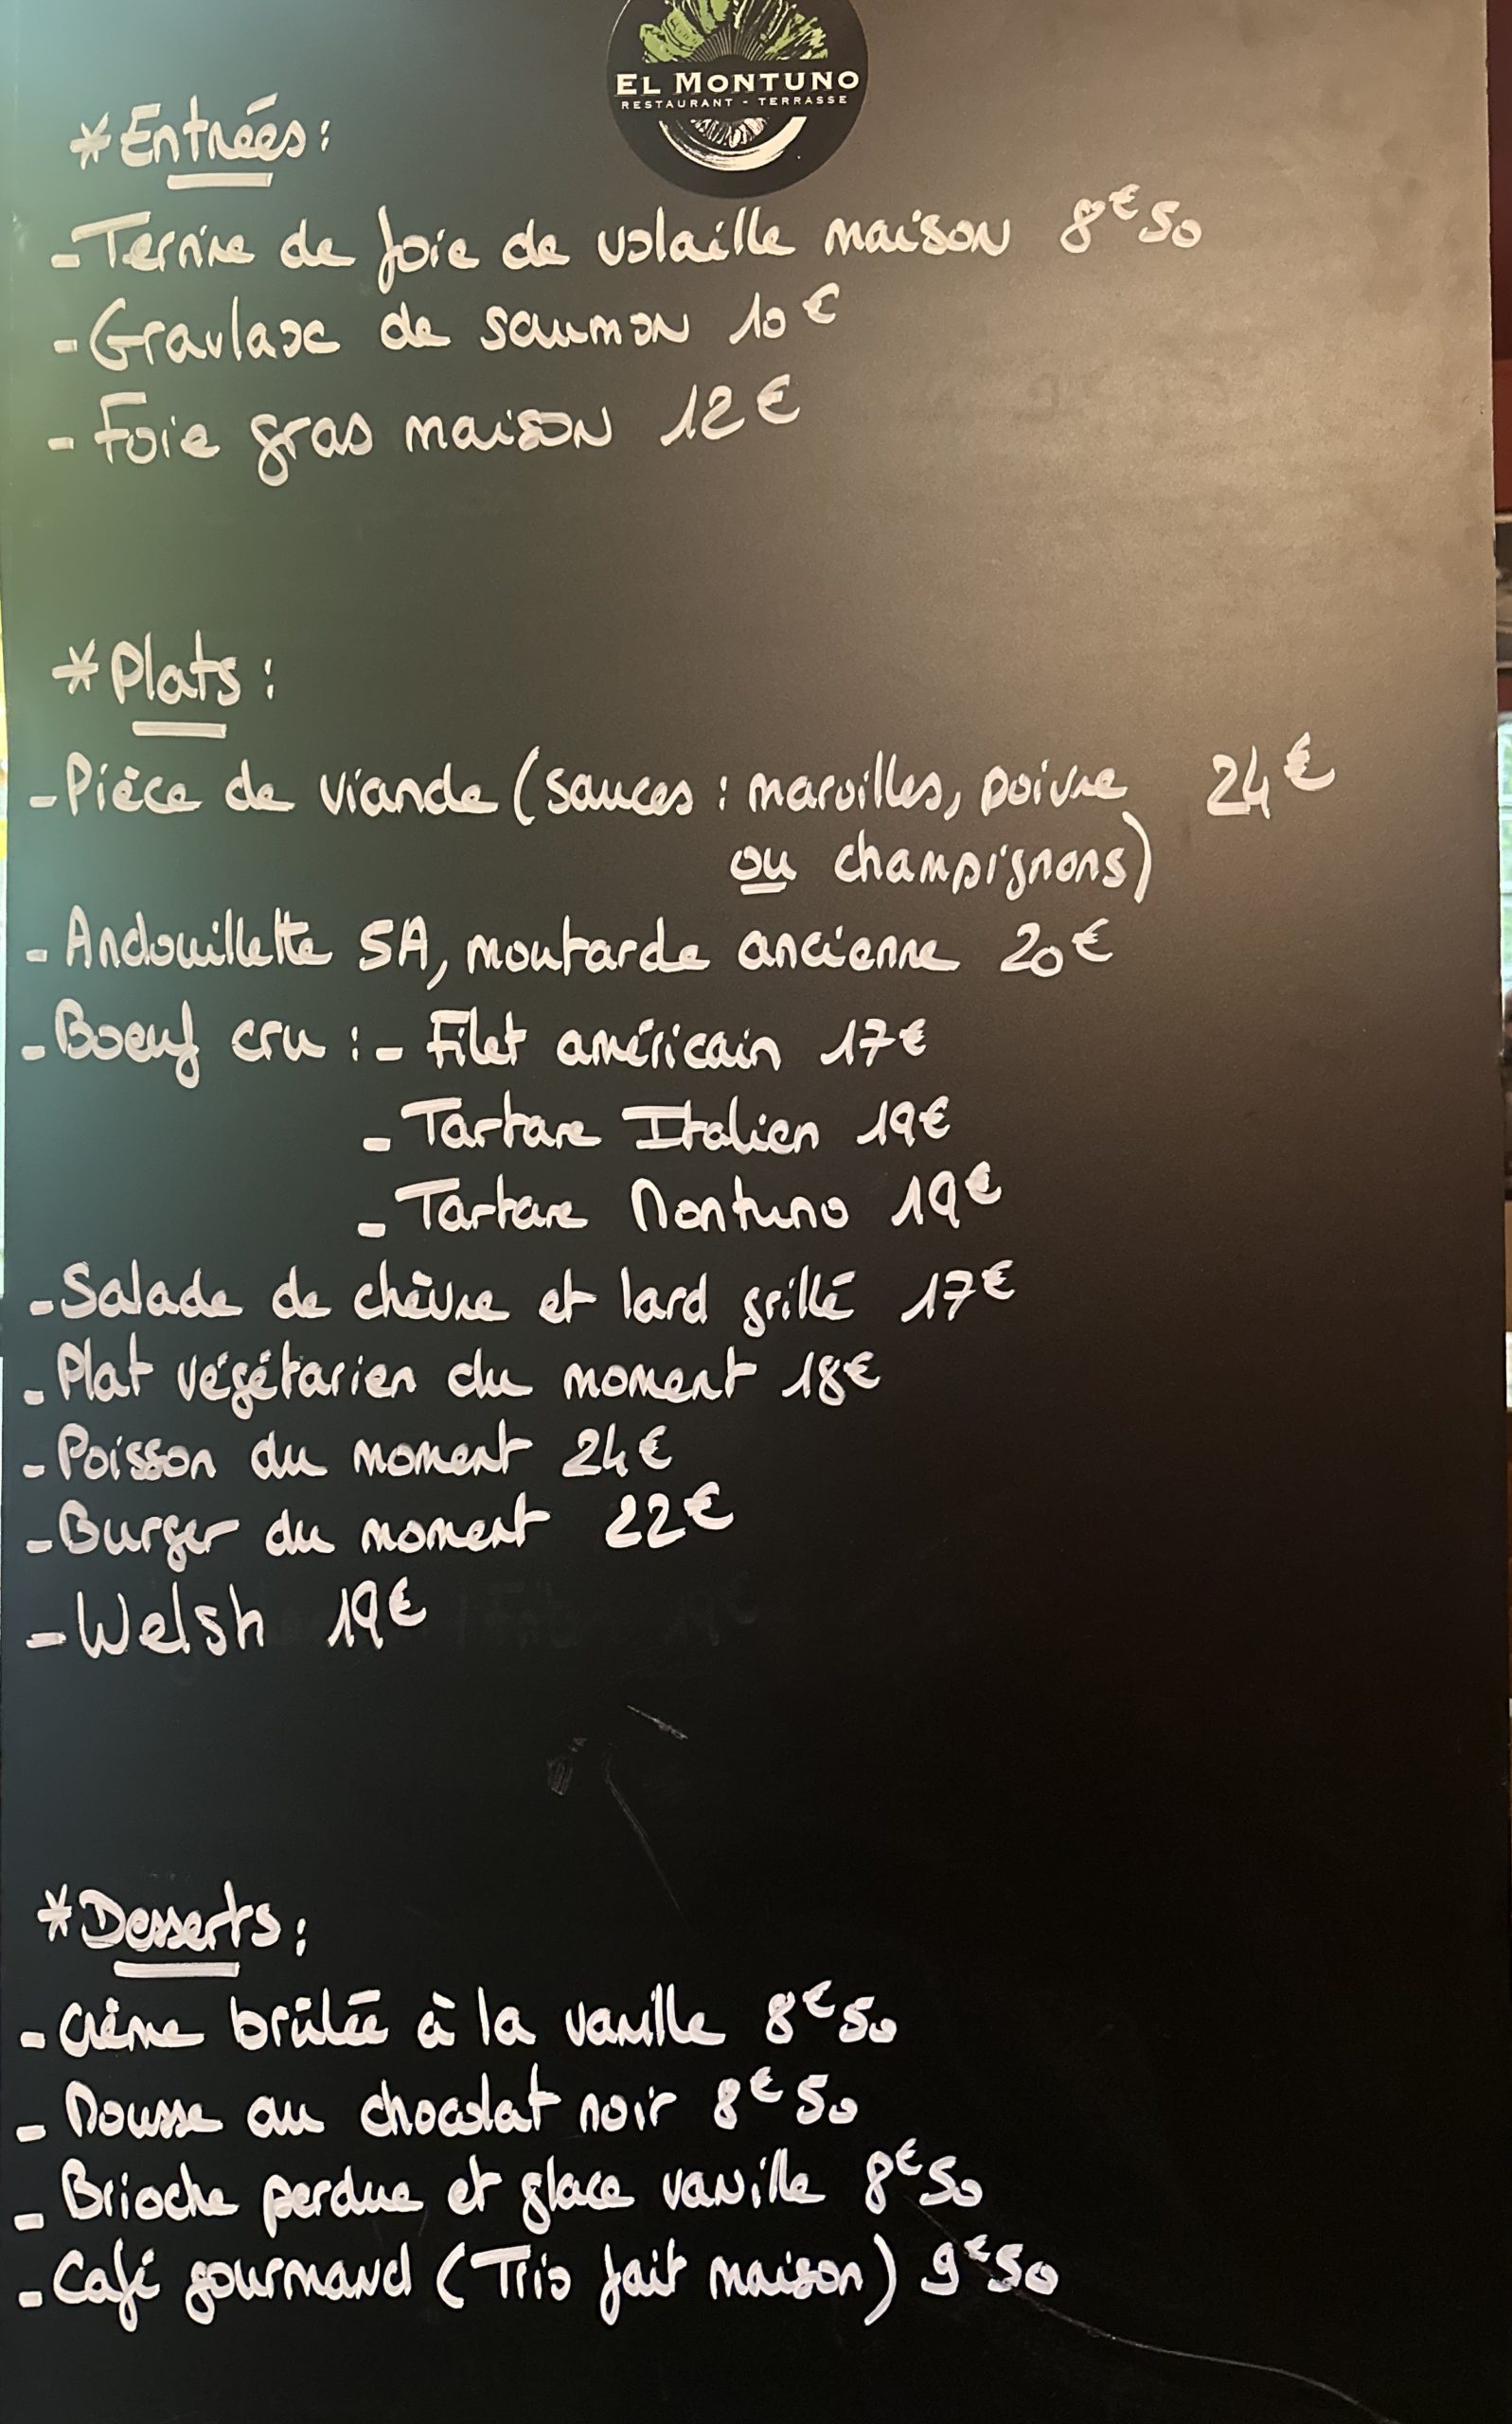 EL MONTUNO
RESTAURANT - TERRASSE
* Entrées :
- Terrine de foie de volaille maison 8€50
- Gravlax de saumon 10€
- Foie gras maison 12€
* Plats :
- Pièce de viande (sauces : maroilles, poivre 24€
ou champignons)
- Andouillette 5A, moutarde ancienne 20€
- Boeuf cru : - Filet américain 17€
- Tartare Italien 19€
- Tartare Montuno 19€
- Salade de chèvre et lard grillé 17€
- Plat végétarien du moment 18€
- Poisson du moment 24€
- Burger du moment 22€
- Welsh 19€
* Desserts :
- Crème brûlée à la vanille 8€50
- Mousse au chocolat noir 8€50
- Brioche perdue et glace vanille 8€50
- Café gourmand (Trio fait maison) 9€50